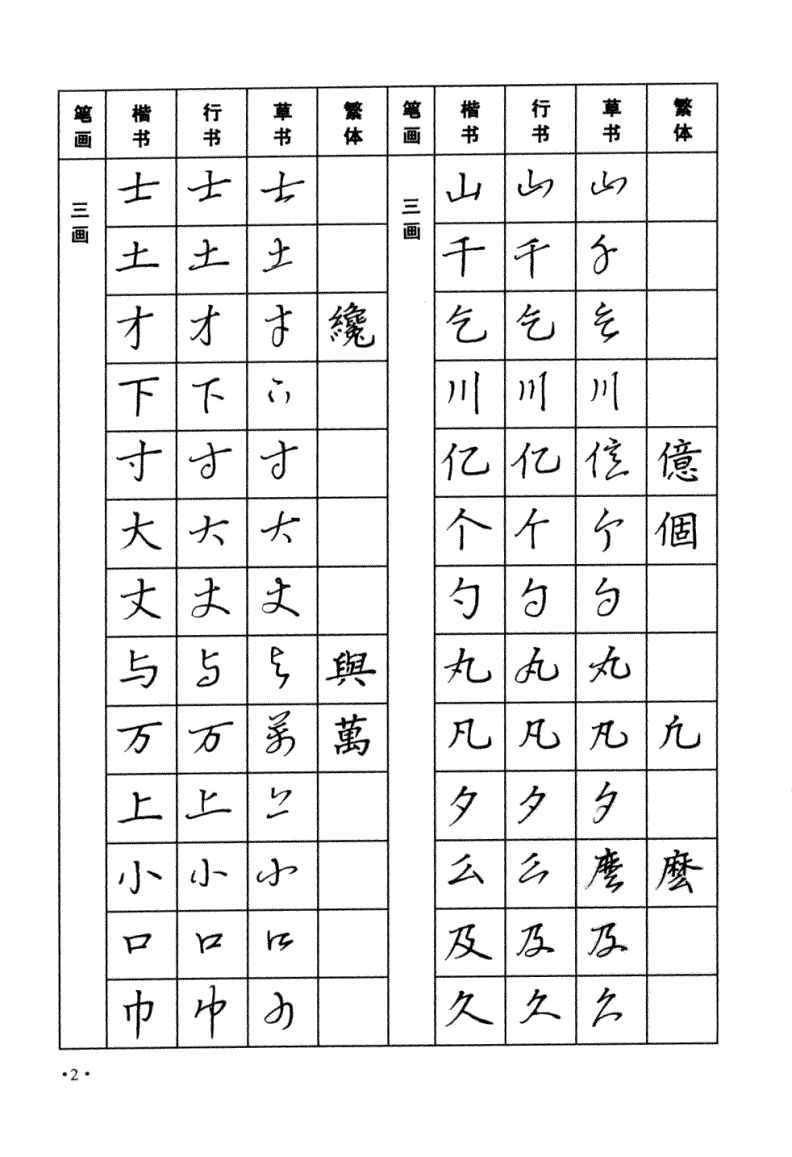 笔画 楷书 行书 草书 繁体 笔画 楷书 行书 草书 繁体
三画 士 士 士 三画 山 山 山
土 土 土 千 千 千
才 才 才 纔 乞 乞 乞
下 下 下 川 川 川
寸 寸 寸 亿 亿 億 億
大 大 大 个 个 个 個
丈 丈 丈 勺 勺 勺
与 与 与 與 丸 丸 丸
万 万 萬 萬 凡 凡 凡 凢
上 上 上 夕 夕 夕
小 小 小 么 么 麼 麽
口 口 口 及 及 及
巾 巾 巾 久 久 久
·2·